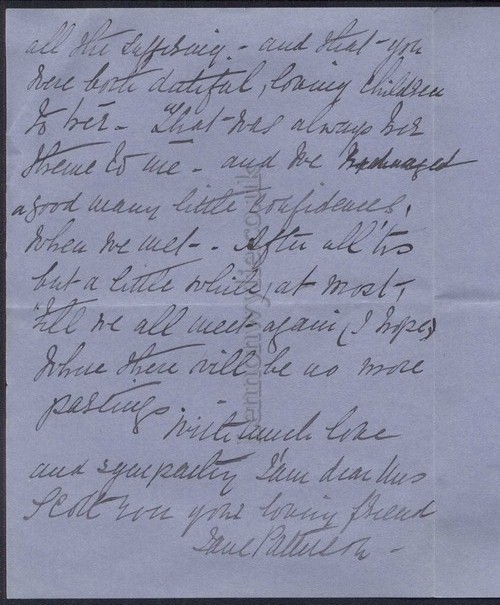 all the suffering - and that - you
were both dutiful, loving children
to her - "That was always her
theme to me - and we exchanged
a good many little confidences,
when we met - . After all 'tis
but a little while, at most,
'till we all meet again, (I hope)
where there will be no more
partings. -
With much love
and sympathy I am dear Mrs
Scott your loving friend
Jane Patterson -